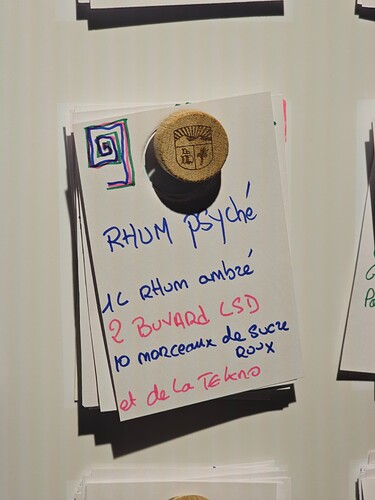 RHUM PSYché
1L RHum ambré
2 BUVARd LSD
10 morceaux de sucre
ROUX
et de La TEKNO